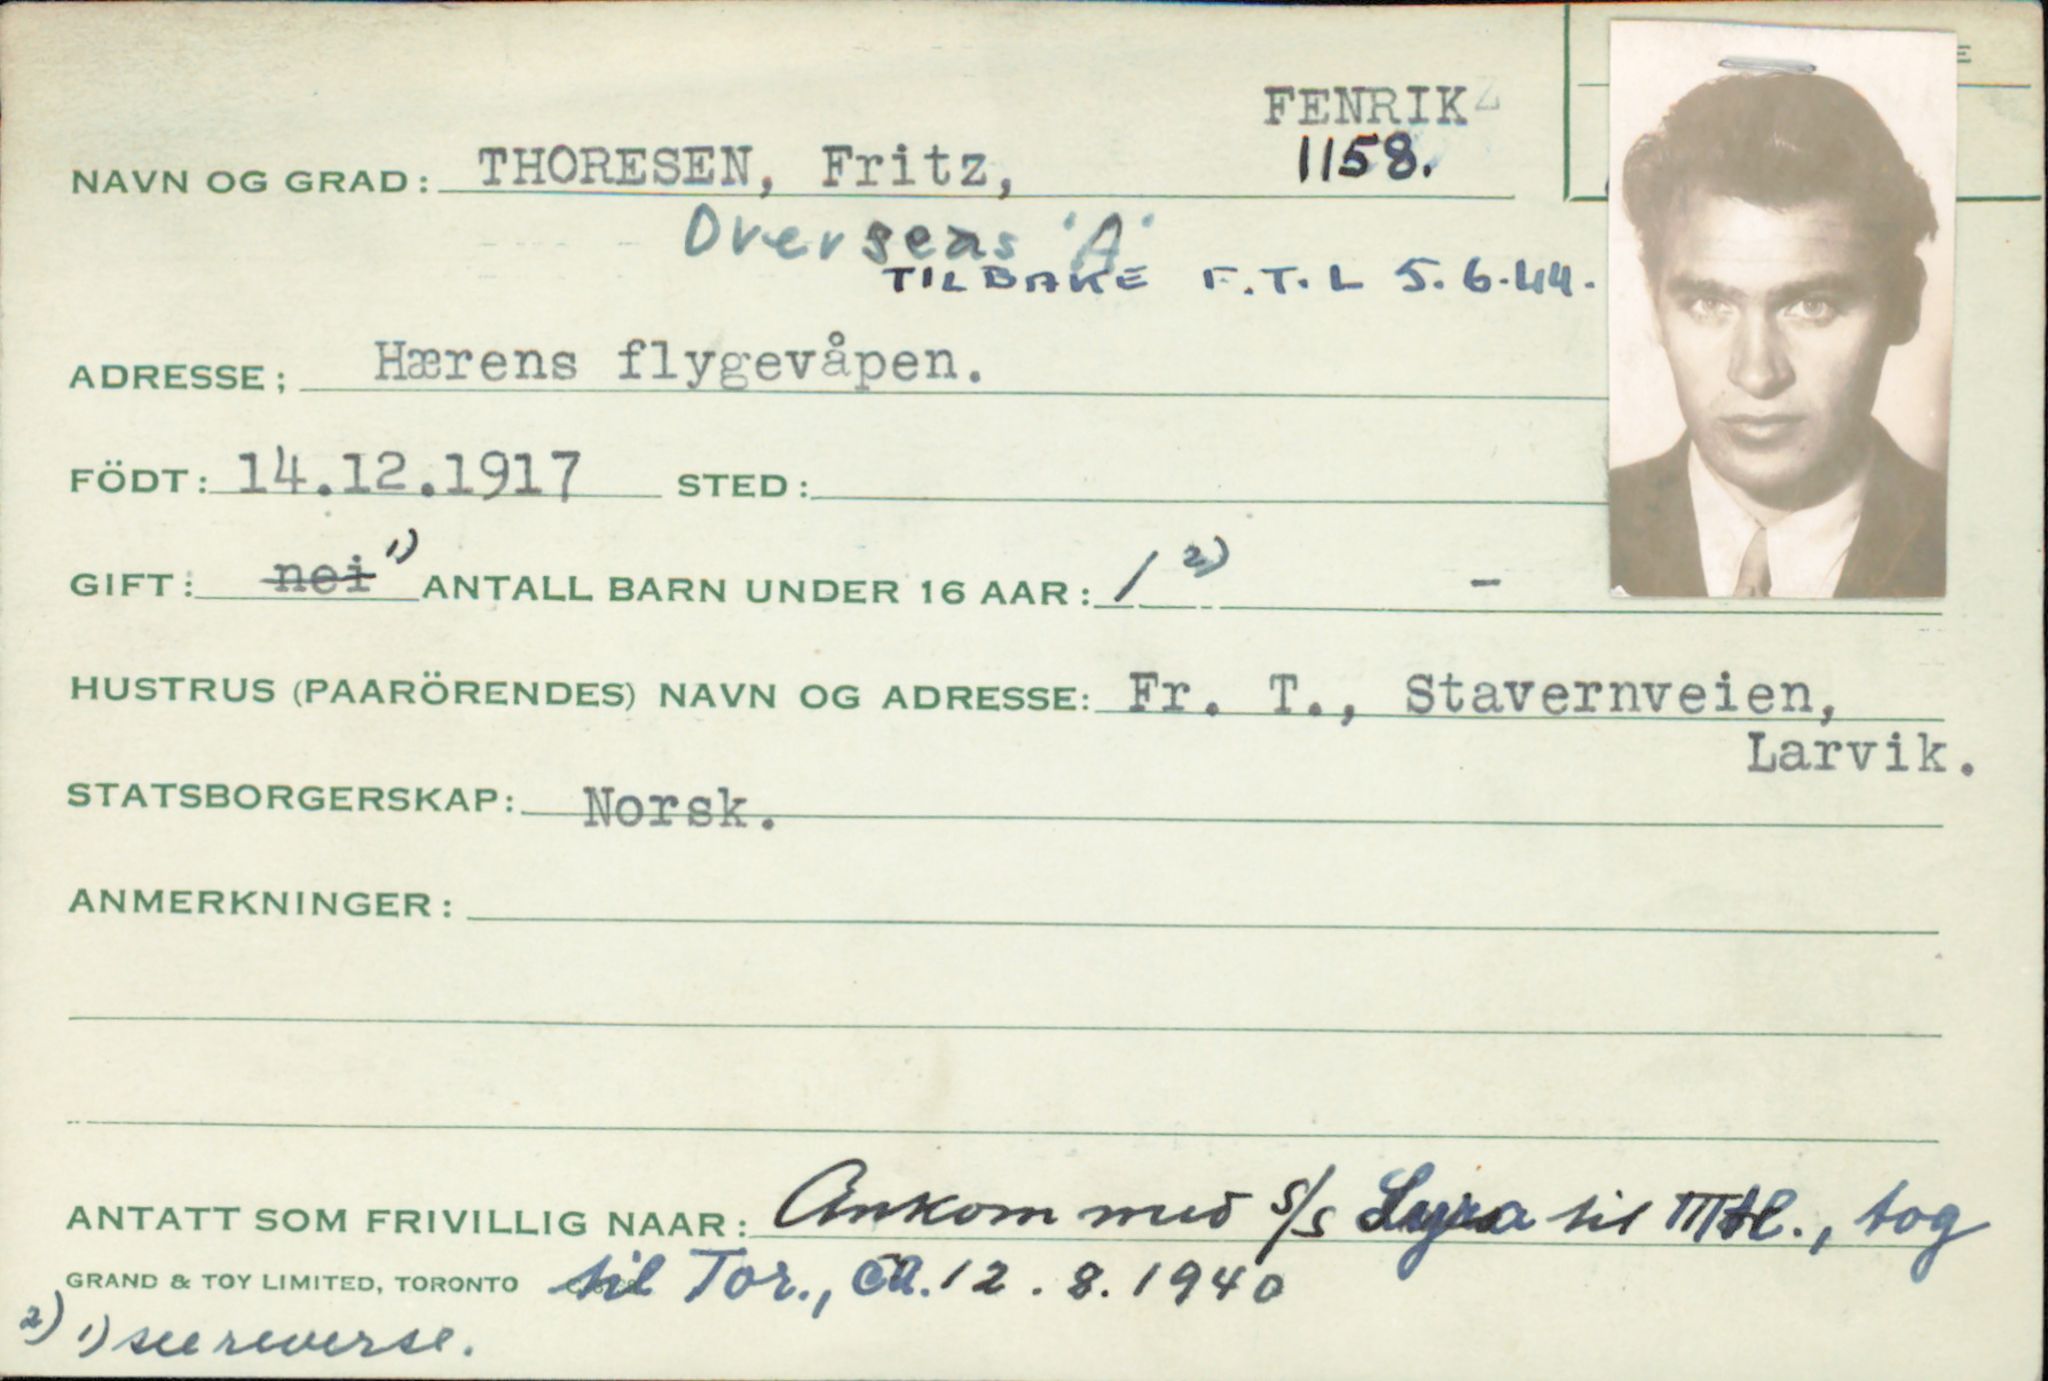 FENRIK
NAVN OG GRAD: THORESEN, Fritz, 1158.
Overseas 'A'
TILBAKE F.T.L 5.6.44.
ADRESSE; Hærens flygevåpen.
FÖDT: 14.12.1917 STED:
GIFT: nei 1) ANTALL BARN UNDER 16 AAR: 1 2) -
HUSTRUS (PAARÖRENDES) NAVN OG ADRESSE: Fr. T., Stavernveien,
Larvik.
STATSBORGERSKAP: Norsk.
ANMERKNINGER:
ANTATT SOM FRIVILLIG NAAR: Ankom med S/S Lyra til Mtl., tog
GRAND & TOY LIMITED, TORONTO til Tor., ca. 12.8.1940
2) 1) see reverse.